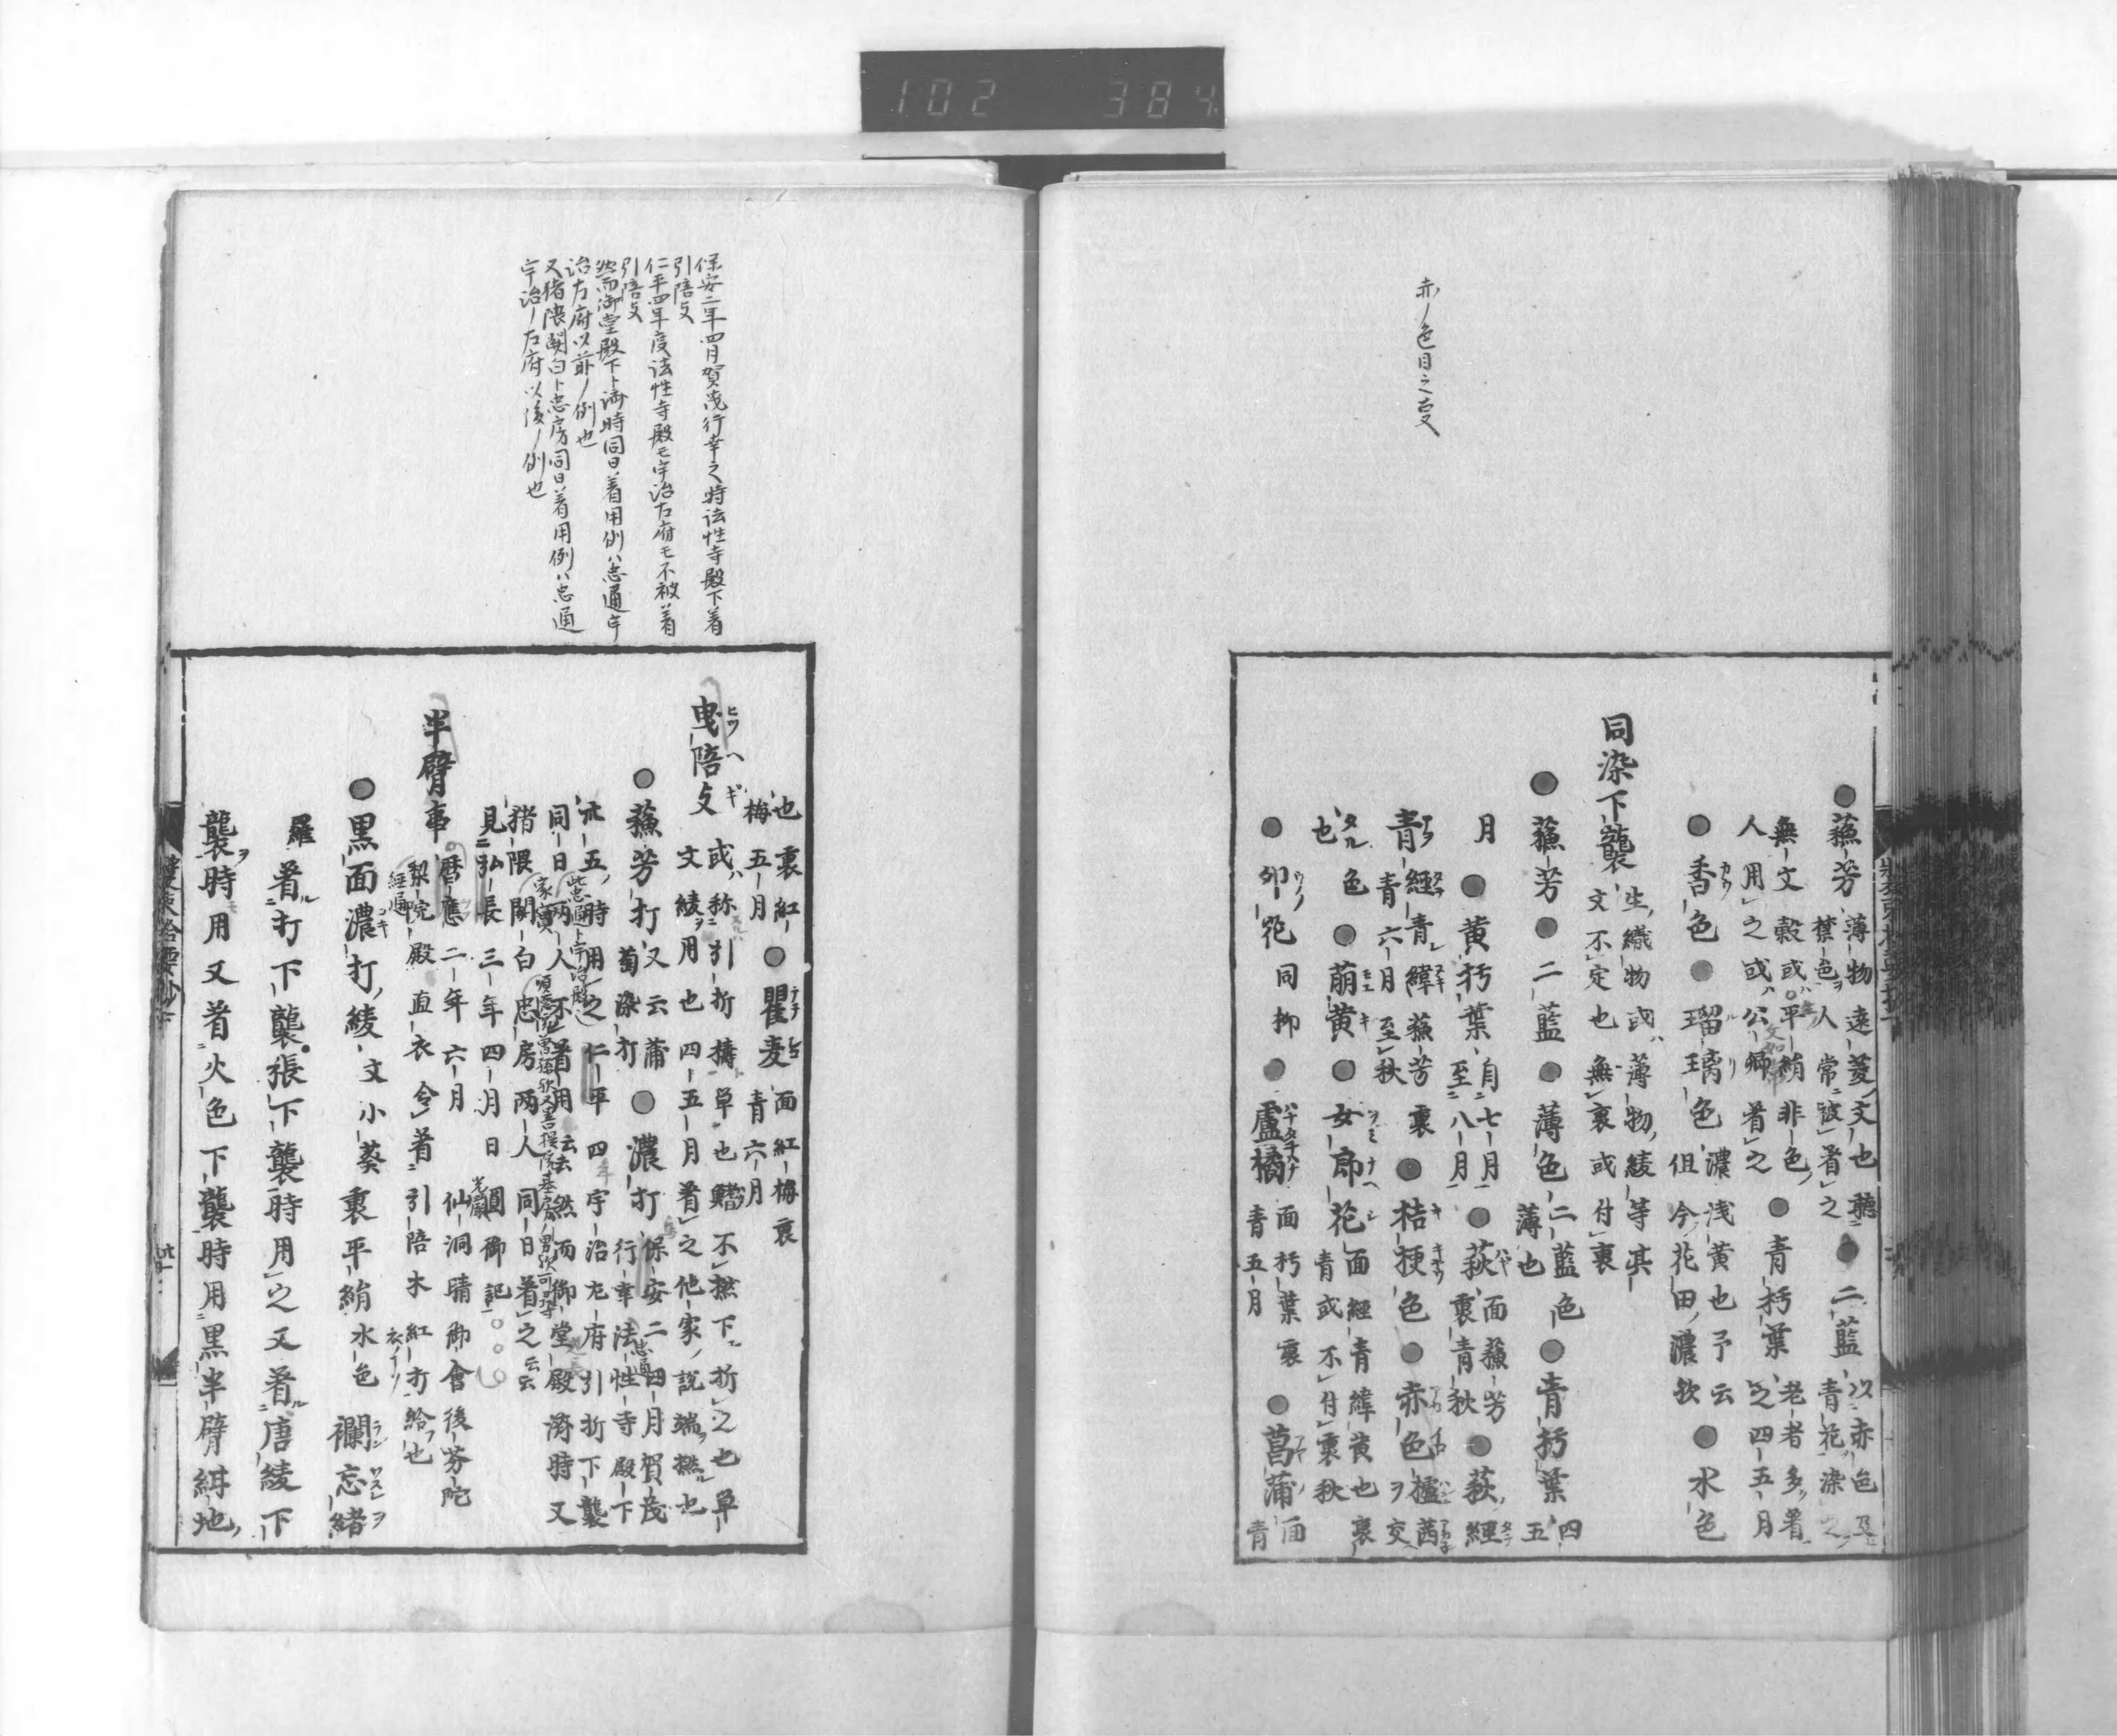 102 384
赤ノ色目之事
●蘓芳 薄物遠菱文也聴
禁色人常被着之●二藍 以赤色及
青花染之
無文縠或平絹非色●青朽葉 老者多着
人用之或公卿着之 之四五月
●香色●瑠璃色 濃浅黄也予云
但今花田濃欤●水色
同染下襲 生織物或薄物綾等其
文不定也無裏或付裏
●蘓芳●二藍●薄色 二藍色
薄也●青朽葉 四
五
月●黄朽葉 自七月
至八月●萩 面蘓芳
裏青秋●萩 経
青経青緯蘓芳裏
青六月至秋●桔梗色●赤色 櫨茜
ヲ交
タル
也色●萌黄●女郎花 面経青緯黄也裏
青或不付裏秋
●卯花 同柳●盧橘 面朽葉裏
青五月●菖蒲 面
青
保安二年四月賀茂行幸之時法性寺殿下着
引陪支
仁平四年度法性寺殿モ宇治左府モ不被着
引陪支
然而御堂殿下ト済時同日着用例ハ忠通宇
治左府以前ノ例也
又猪隈関白ト忠房同日着用例ハ忠通
宇治ノ左府以後ノ例也
也裏紅●瞿麦 面紅梅裏
梅五月 青六月
曳陪支 或称引折搆草也鰭不撚下折之也単
文綾用也四五月着之他家説端撚也
●蘓芳打 又云蒲
萄染打●濃打 保安二四月賀茂
行幸法性寺殿下
廿五時用之仁平四宇治左府引折下襲
同日両人不着用云云然而御堂殿済時又
猪隈関白忠房両人同日着之云云
見弘長三年四月日圓御記
半臂事 暦應二年六月仙洞晴御會後芬陀
梨院殿直衣令着引陪木紅打給也
経通
●黒面濃打綾文小葵裏平絹水色襴忘緒
羅 着打下襲張下襲時用之又着唐綾下
襲時用又着火色下襲時用黒半臂緂地